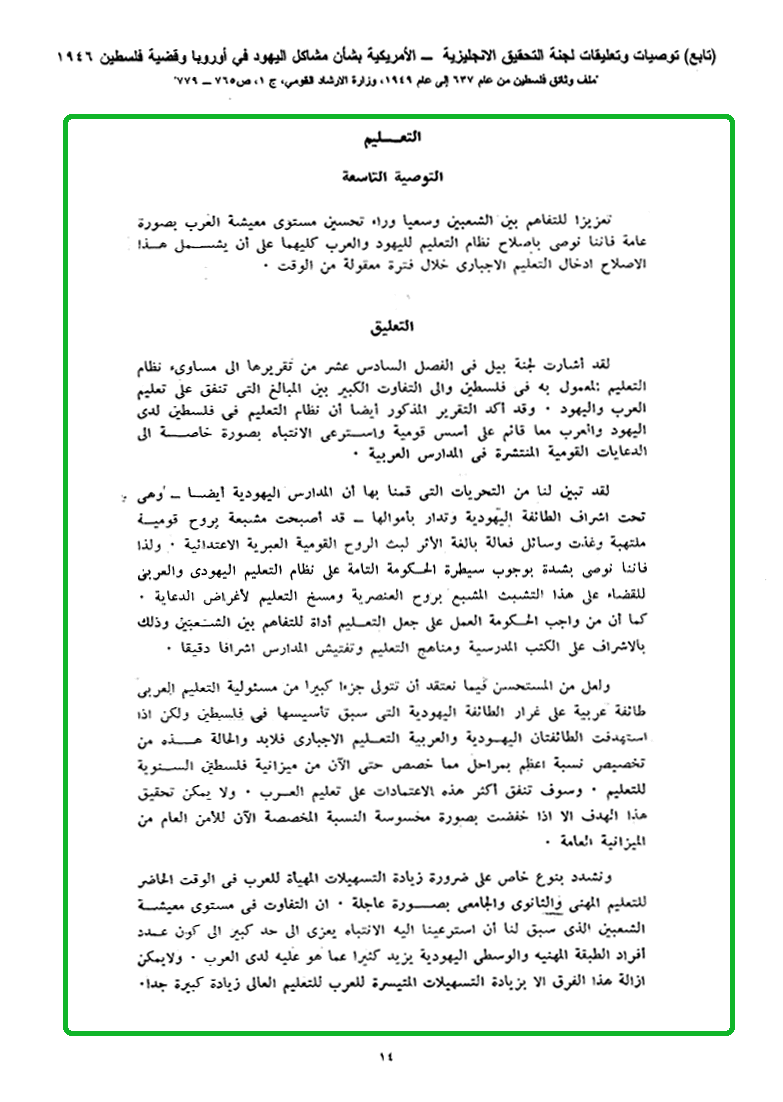 (تابع) توصيات وتعليقات لجنة التحقيق الانجليزية – الأمريكية بشأن مشاكل اليهود في أوروبا وقضية فلسطين ١٩٤٦
"ملف وثائق فلسطين من عام ٦٣٧ إلى عام ١٩٤٩، وزارة الارشاد القومي، ج ١، ص ٧٦٥ – ٧٧٩"
التعـــليم
التوصية التاسعة
تعزيزا للتفاهم بين الشعبين وسعيا وراء تحسين مستوى معيشة العرب بصورة
عامة فاننا نوصى بإصلاح نظام التعليم لليهود والعرب كليهما على أن يشـــمل هـــذا
الاصلاح ادخال التعليم الاجبارى خلال فترة معقولة من الوقت ٠
التعليق
لقد أشارت لجنة بيل فى الفصل السادس عشر من تقريرها الى مساوىء نظام
التعليم المعمول به فى فلسطين والى التفاوت الكبير بين المبالغ التى تنفق على تعليم
العرب واليهود ٠ وقد أكد التقرير المذكور أيضا أن نظام التعليم فى فلسطين لدى
اليهود والعرب معا قائم على أسس قومية واســترعى الانتباه بصورة خاصـــة الى
الدعايات القومية المنتشرة فى المدارس العربية ٠
لقد تبين لنا من التحريات التى قمنا بها أن المدارس اليهودية أيضـــا – وهى
تحت اشراف الطائفة اليهودية وتدار بأموالها – قد أصبحت مشبعة بروح قوميـــة
ملتهبة وغدت وسائل فعالة بالغة الأثر لبث الروح القومية العبرية الاعتدائية ٠ ولذا
فاننا نوصى بشدة بوجوب سيطرة الحكومة التامة على نظام التعليم اليهودى والعربى
للقضاء على هذا التشبث المشبع بروح العنصرية ومسخ التعليم لأغراض الدعاية ٠
كما أن من واجب الحكومة العمل على جعل التعـــليم أداة للتفاهم بين الشـــعبين وذلك
بالاشراف على الكتب المدرسية ومناهج التعليم وتفتيش المدارس اشرافا دقيقا ٠
ولعل من المستحسن فيما نعتقد أن تتولى جزءا كبيرا من مسئولية التعليم العربى
طائفة عربية على غرار الطائفة اليهودية التى سبق تأسيسها فى فلسطين ولكن اذا
استهدفت الطائفتان اليهـودية والعربية التعـــليم الاجبارى فلابد والحالة هـــذه من
تخصيص نسبة اعظم بمراحل مما خصص حتى الآن من ميزانية فلسطين الســـنوية
للتعليم ٠ وسوف تنفق أكثر هذه الاعتمادات على تعليم العـــرب ٠ ولا يمكن تحقيق
هذا الهدف الا اذا خفضت بصورة محسوسة النسبة المخصصة الآن للأمن العام من
الميزانية العامة ٠
ونشدد بنوع خاص على ضرورة زيادة التسهيلات المهيأة للعرب فى الوقت الحاضر
للتعليم المهنى والثانوى والجامعى بصـــورة عاجلة ٠ ان التفاوت فى مستوى معيشـــة
الشعبين الذى سبق لنا أن استرعينا اليه الانتباه يعزى الى حد كبير الى كون عـــدد
أفراد الطبقة المهنيه والوسطى اليهودية يزيد كثيرا عما هو عليه لدى العرب ٠ ولايمكن
ازالة هذا الفرق الا بزيادة التسهيلات المتيسرة للعرب للتعليم العالى زيادة كبيرة جدا٠
١٤